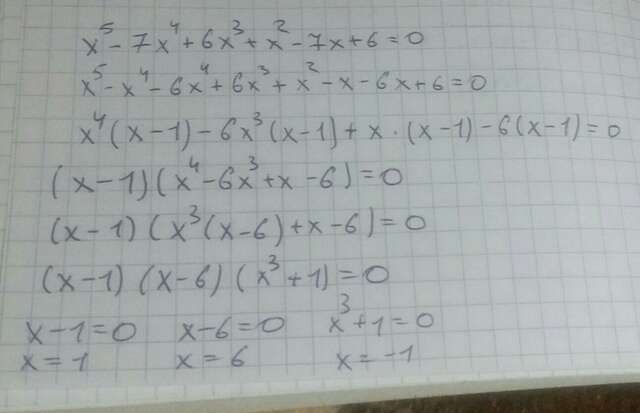 x⁵ - 7x⁴ + 6x³ + x² - 7x + 6 = 0
x⁵ - x⁴ - 6x⁴ + 6x³ + x² - x - 6x + 6 = 0
x⁴(x-1) - 6x³(x-1) + x · (x-1) - 6(x-1) = 0
(x-1)(x⁴ - 6x³ + x - 6) = 0
(x-1)(x³(x-6) + x - 6) = 0
(x-1)(x-6)(x³+1) = 0
x-1=0 x-6=0 x³+1=0
x=1 x=6 x=-1